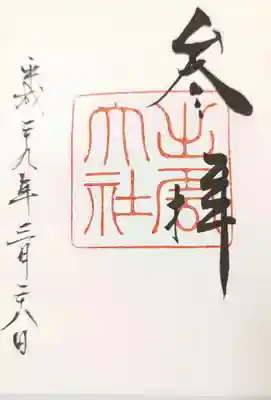 参拝
出雲大社
平成二十九年三月二十八日